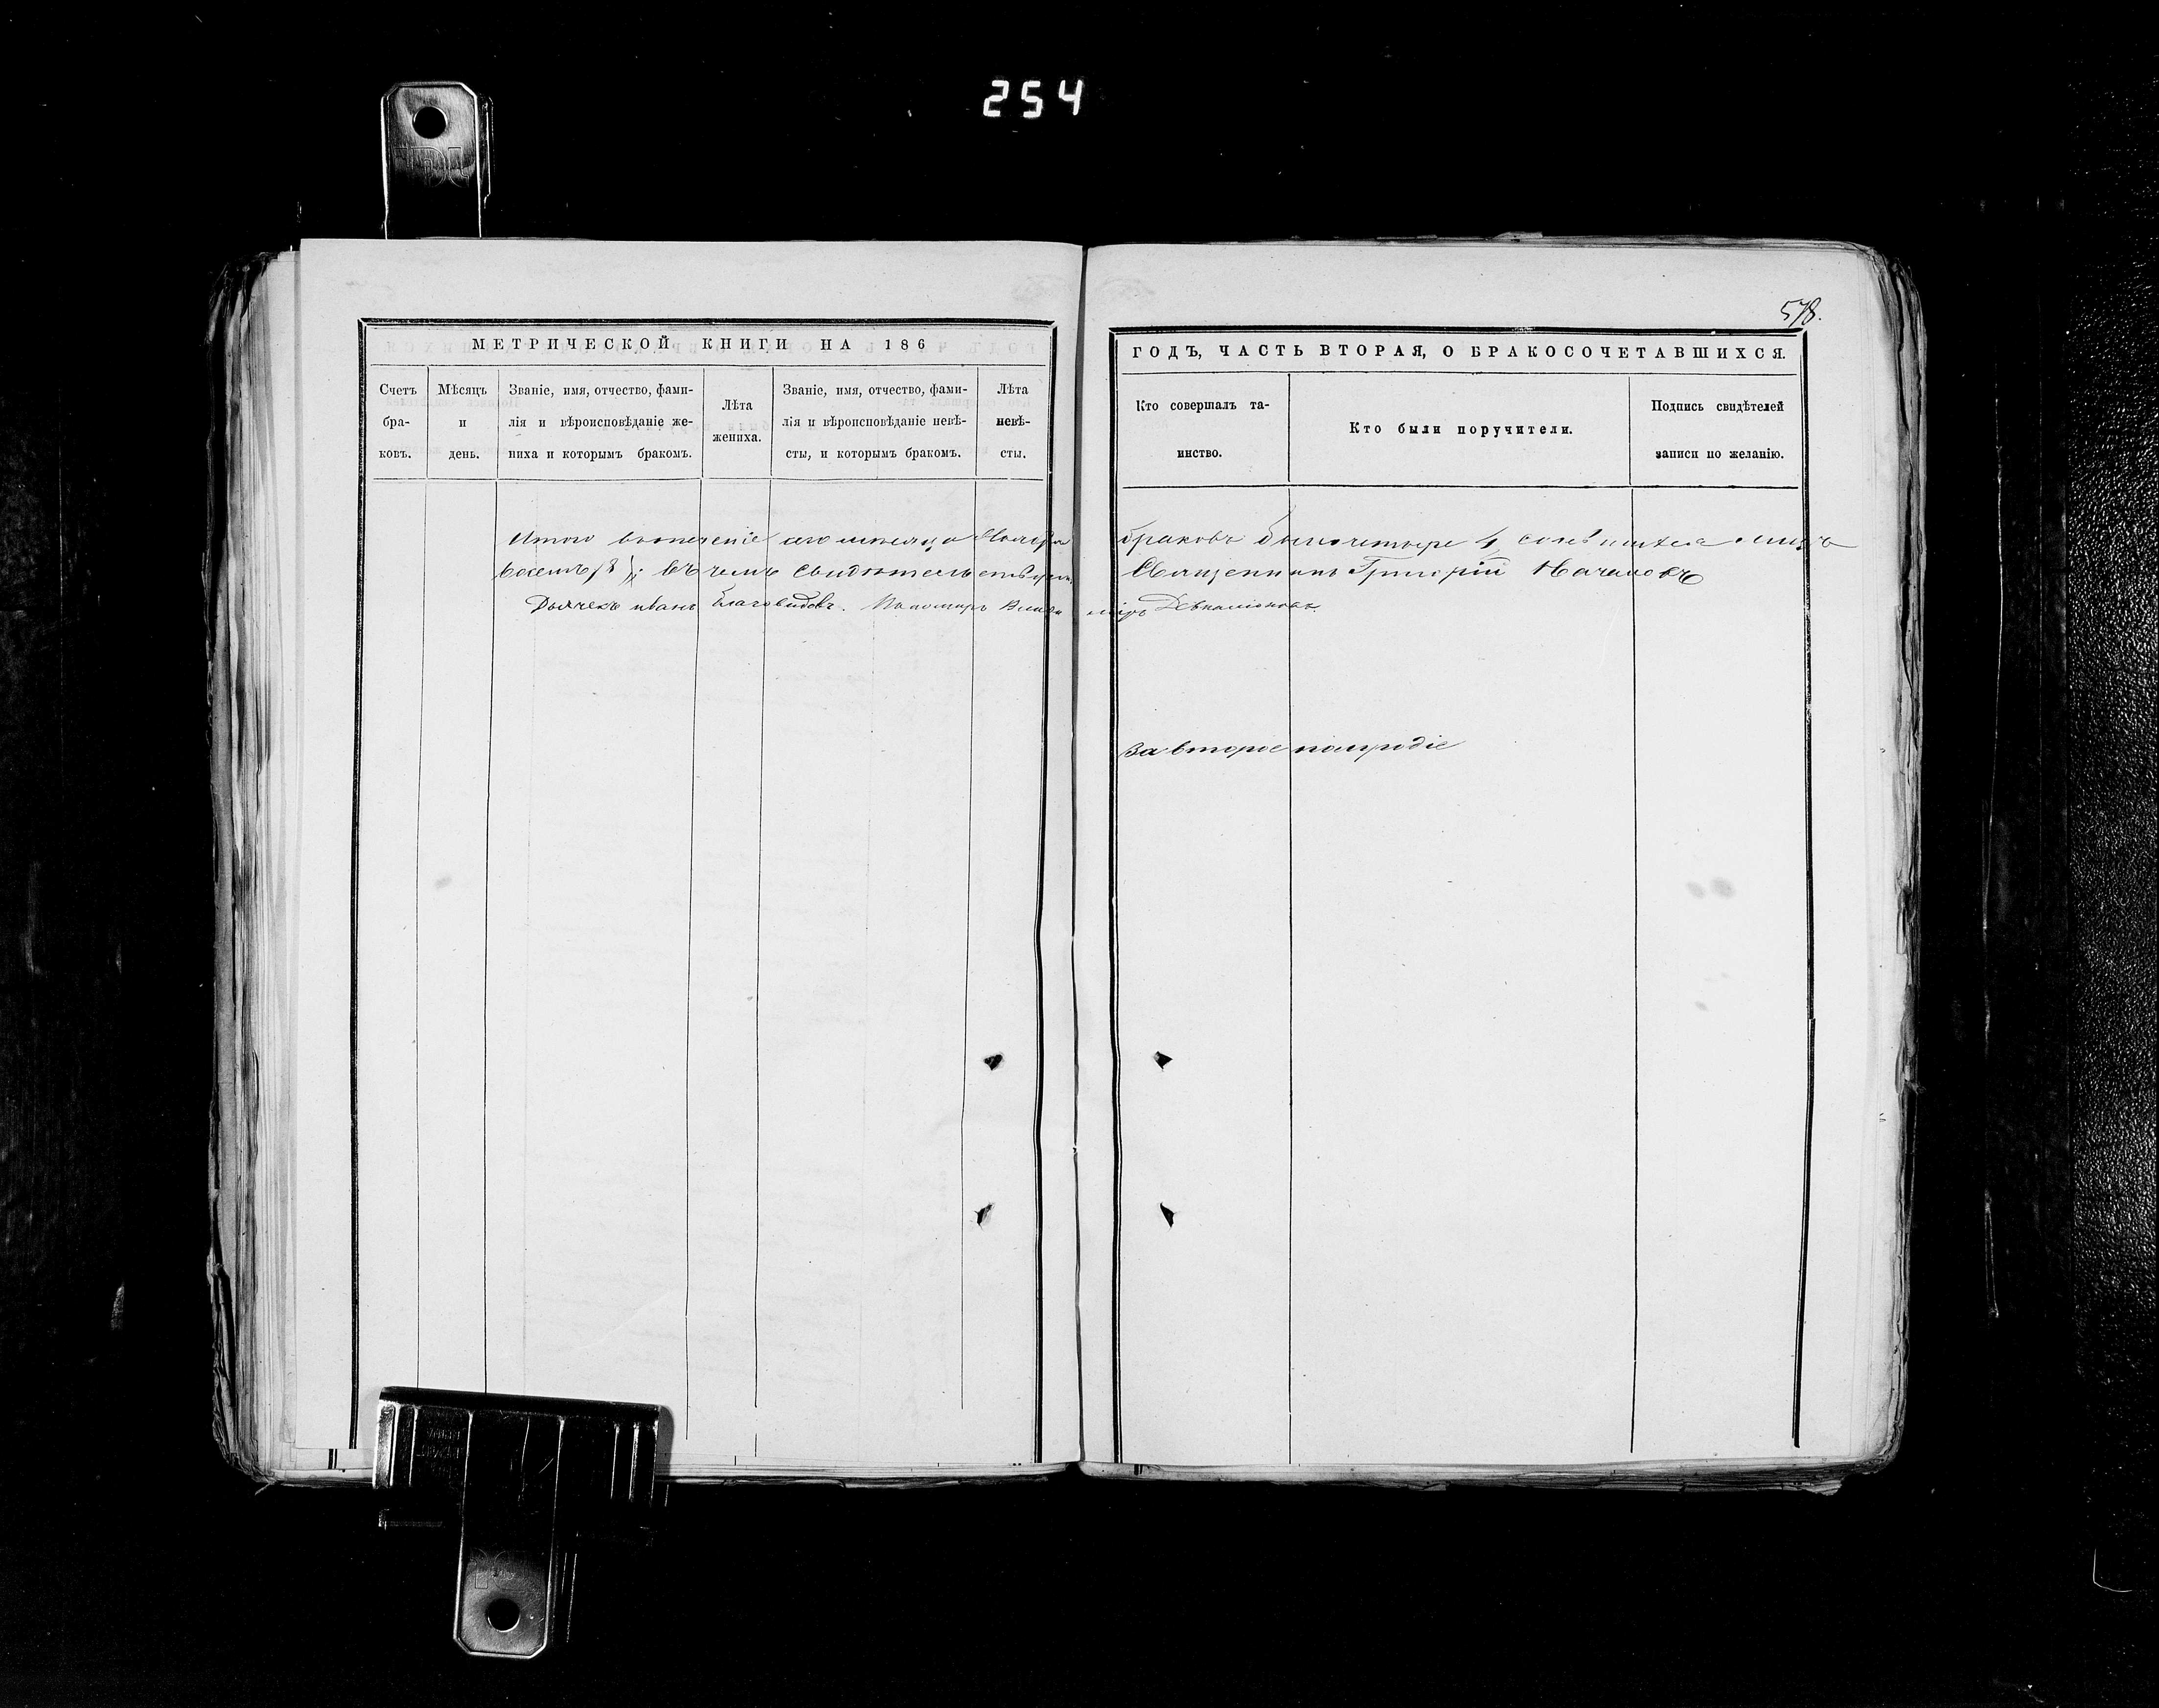 254
578.
МЕТРИЧЕСКОЙ КНИГИ НА 186
ГОДЪ, ЧАСТЬ ВТОРАЯ, О БРАКОСОЧЕТАВШИХСЯ.
Счетъ бра- ковъ.
Мѣсяцъ и день.
Званіе, имя, отчество, фами-
лія и вѣроисповѣданіе же-
ниха и которымъ бракомъ.
Лѣта жениха.
Званіе, имя, отчество, фами-
лія и вѣроисповѣданіе невѣ-
сты, и которымъ бракомъ.
Лѣта невѣ- сты.
Кто совершалъ та-
инство.
Кто были поручители.
Подпись свидѣтелей
записи по желанію.
Итого втеченіе сего мѣсяца Ноября браковъ было четыре 4, лицъ
восемь /8/; въ чемъ свидѣтельствуемъ: Священникъ Григорій
Дьячекъ Иванъ Благовидовъ. Пономарь Владиміръ
За второе полугодіе